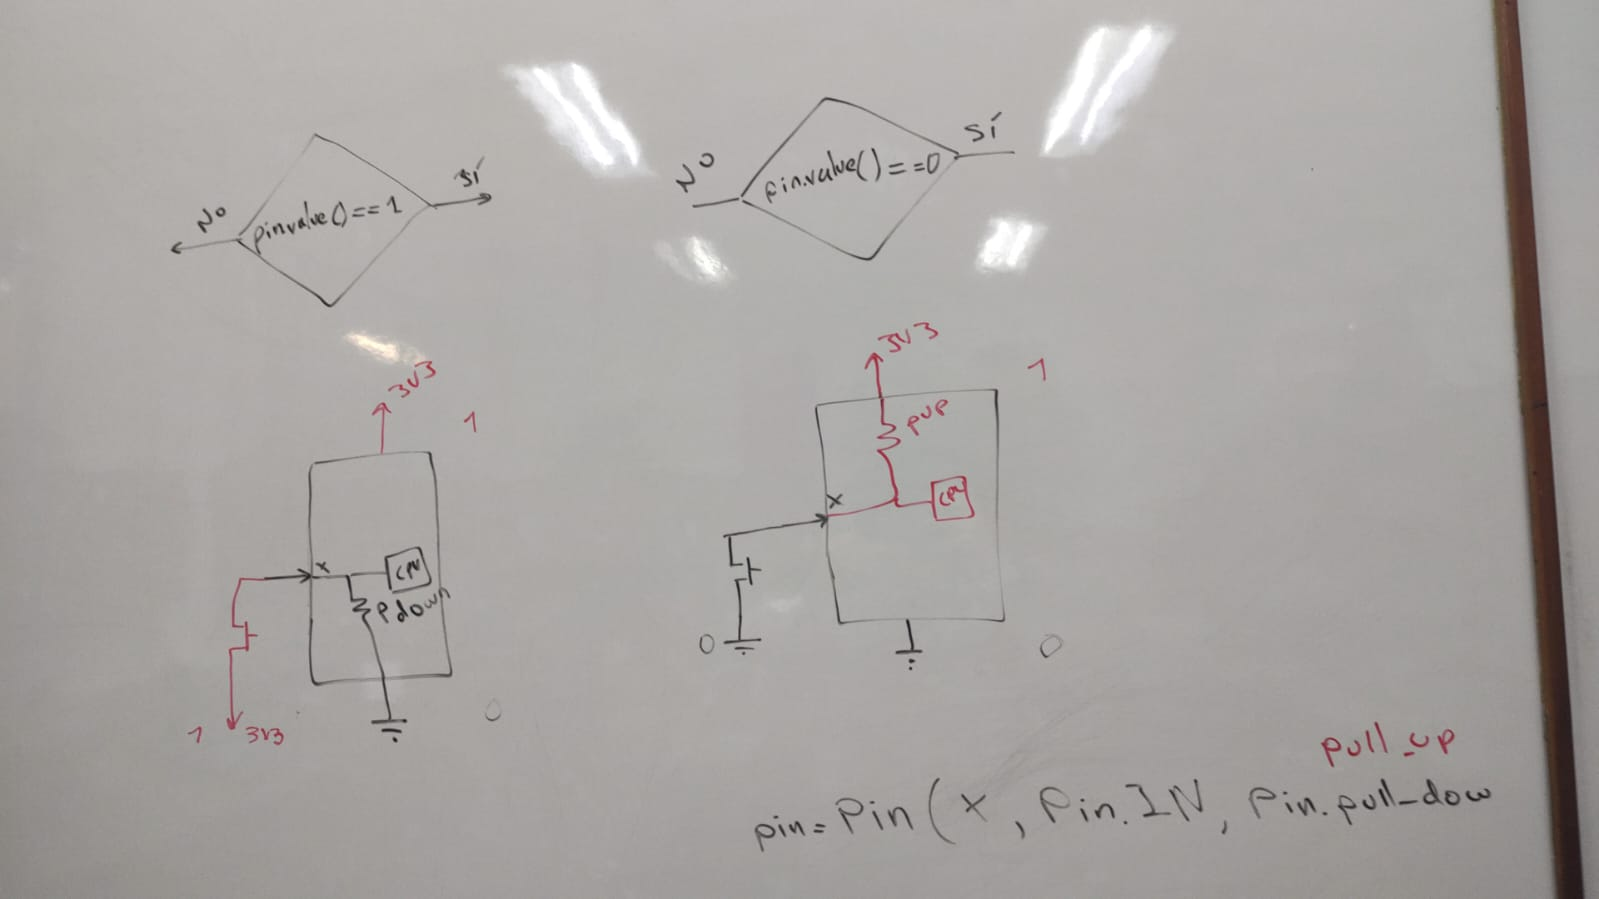 No
pin.value()==1
sí
No
pin.value()==0
sí
3v3
1
x
CPU
Pdown
1
3v3
0
3v3
1
pup
x
CPU
0
0
pull_up
pin=Pin(x, Pin.IN, Pin.pull_dow